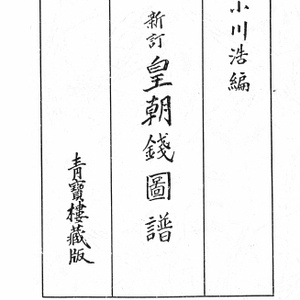 小川浩編
新訂
皇朝錢圖譜
青寶樓藏版